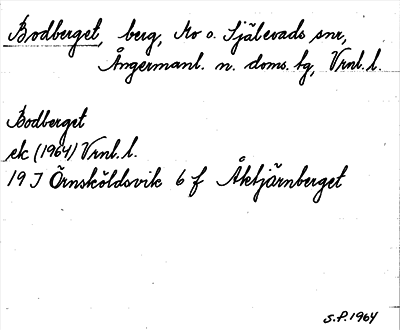 Bodberget, berg, Ko o. Själevads snr,
Ångermanl. n. doms. tg, Vrnl. l.
Bodberget
ek (1964) Vrnl. l.
19 J Örnsköldsvik 6 f Åktjärnberget
S.P. 1964